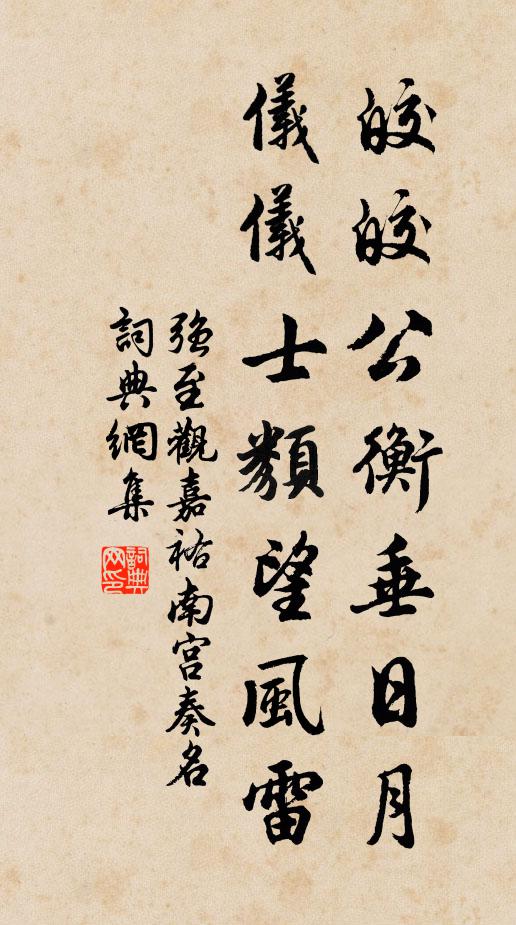 皎皎公衡垂日月
儀儀士類望風雷
強至觀嘉祐南宮奏名
詞典網集
詞典
网印